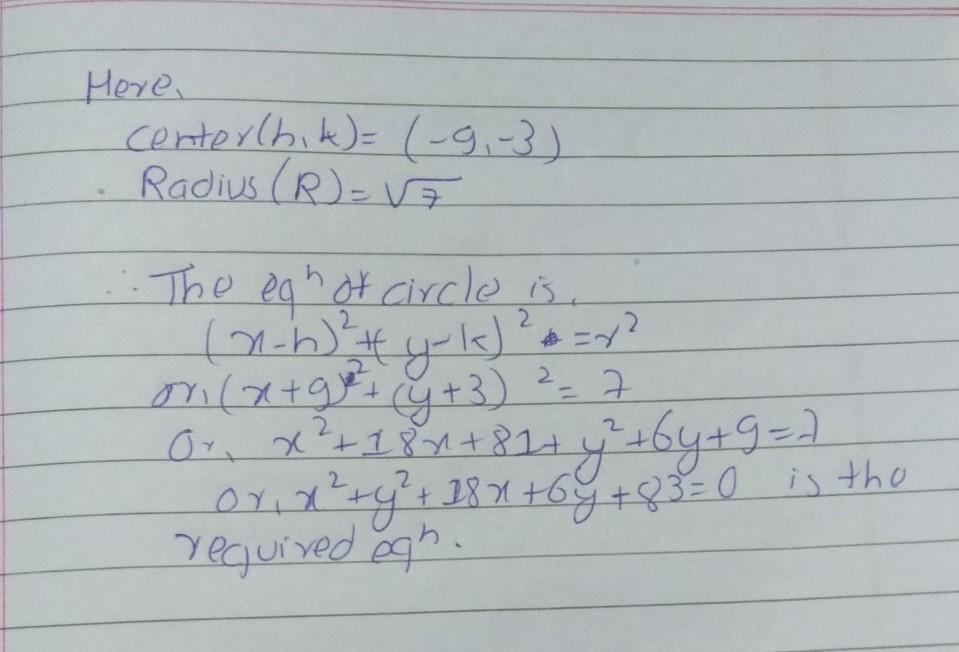 Here,
center(h,k)= (-9,-3)
Radius (R)=√7
∴ The eqⁿ of circle is,
(x-h)²+(y-k)² =r²
or,(x+9)²+(y+3)²=7
Or, x²+18x+81+y²+6y+9=7
or,x²+y²+18x+6y+83=0 is the
required eqⁿ.